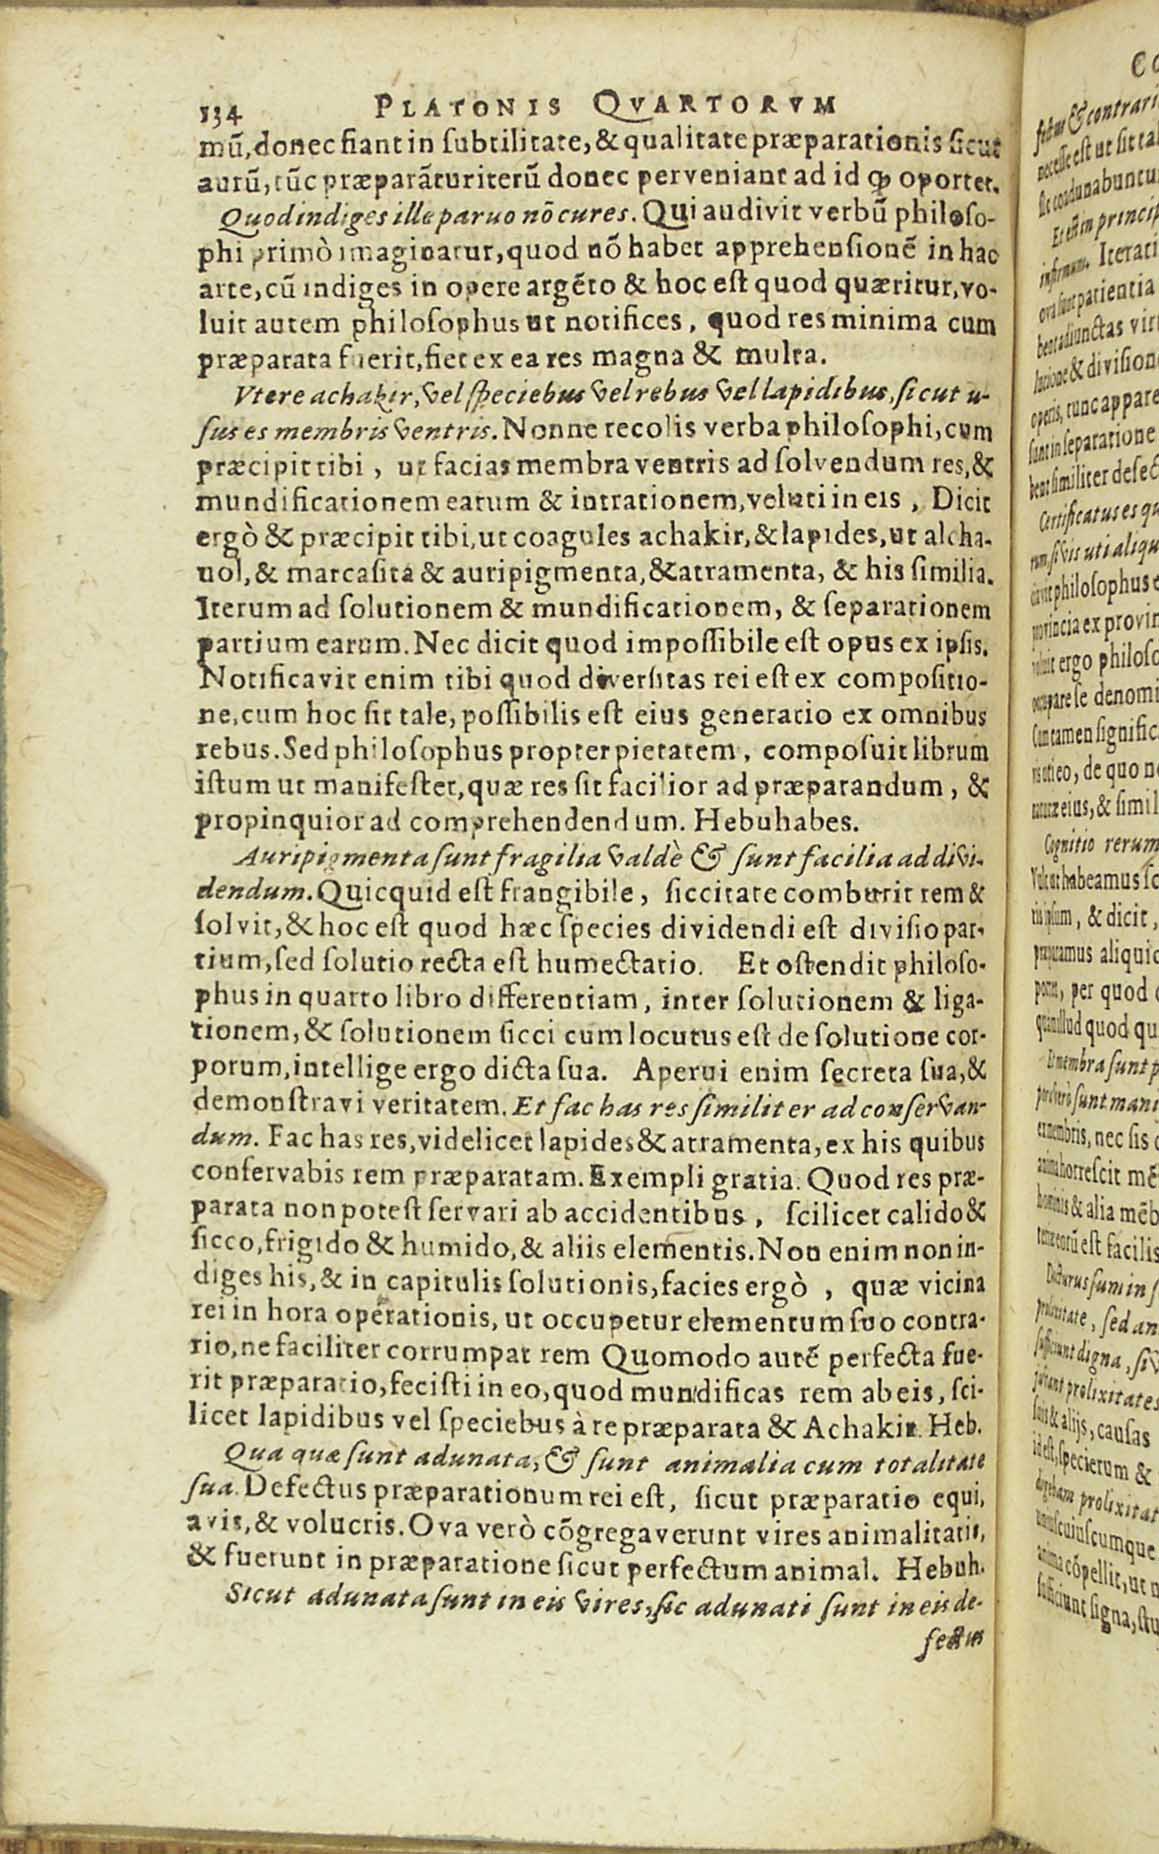 134 PLATONIS QVARTORVM
mū, donec fiant in subtilitate, & qualitate præparationis sicut
aurū, tūc præparāturiterū donec perveniant ad id ꝙ oportet.
Quod indiges ille paruo nō cures. Qui audivit verbū philoso-
phi primò imaginatur, quod nō habet apprehensionē in hac
arte, cū indiges in opere argēto & hoc est quod quæritur, vo-
luit autem philosophus ut notifices, quod res minima cum
præparata fuerit, fiet ex ea res magna & multa.
Vtere achakir, vel speciebus vel rebus vel lapidibus, sicut u-
sus es membris ventris. Nonne recolis verba philosophi, cum
præcipit tibi, ut facias membra ventris ad solvendum res, &
mundificationem earum & intrationem, veluti in eis, Dicit
ergò & præcipit tibi, ut coagules achakir, & lapides, ut alcha-
uol, & marcasita & auripigmenta, & atramenta, & his similia.
Iterum ad solutionem & mundificationem, & separationem
partium earum. Nec dicit quod impossibile est opus ex ipsis.
Notificavit enim tibi quod diversitas rei est ex compositio-
ne, cum hoc sit tale, possibilis est eius generatio ex omnibus
rebus. Sed philosophus propter pietatem, composuit librum
istum ut manifestet, quæ res sit facilior ad præparandum, &
propinquior ad comprehendendum. Hebuhabes.
Auripigmenta sunt fragilia valdè & sunt facilia ad divi-
dendum. Quicquid est frangibile, siccitate comburit rem &
solvit, & hoc est quod hæc species dividendi est divisio par-
tium, sed solutio recta est humectatio. Et ostendit philoso-
phus in quarto libro differentiam, inter solutionem & liga-
tionem, & solutionem sicci cum locutus est de solutione cor-
porum, intellige ergo dicta sua. Aperui enim secreta sua, &
demonstravi veritatem. Et fac has res similiter ad conservan-
dum. Fac has res, videlicet lapides & atramenta, ex his quibus
conservabis rem præparatam. Exempli gratia: Quod res præ-
parata non potest servari ab accidentibus, scilicet calido &
sicco, frigido & humido, & aliis elementis. Non enim non in-
diges his, & in capitulis solutionis, facies ergò, quæ vicina
rei in hora operationis, ut occupetur elementum suo contra-
rio, ne faciliter corrumpat rem Quomodo autē perfecta fue-
rit præparatio, fecisti in eo, quod mundificas rem ab eis, sci-
licet lapidibus vel speciebus à re præparata & Achakir. Heb.
Qua quæ sunt adunata, & sunt animalia cum totalitate
sua. Defectus præparationum rei est, sicut præparatio equi,
avis, & volucris. Ova verò cōgregaverunt vires animalitatis,
& fuerunt in præparatione sicut perfectum animal. Hebuh.
Sicut adunata sunt in eis vires, sic adunati sunt in eis de-
fectus